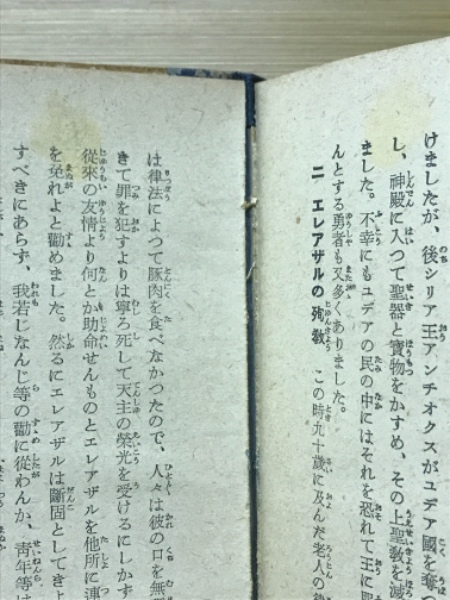 けましたが、後シリア王アンチオクスがユデア國を奪つ
し、神殿に入つて聖器と寶物をかすめ、その上聖敎を滅
ました。不幸にもユデアの民の中にはそれを恐れて王に
んとする勇者も又多くありました。
二 エレアザルの殉敎 この時九十歲に及んだ老人の
は律法によつて豚肉を食べなかつたので、人々は彼の口を無
きて罪を犯すよりは寧ろ死して天主の榮光を受けるにしかず
從來の友情より何とか助命せんものとエレアザルを他所に連
を免れよと勸めました。然るにエレアザルは斷固としてきよ
すべきにあらず、我若じなんじ等の勸に從わんか、靑年等は